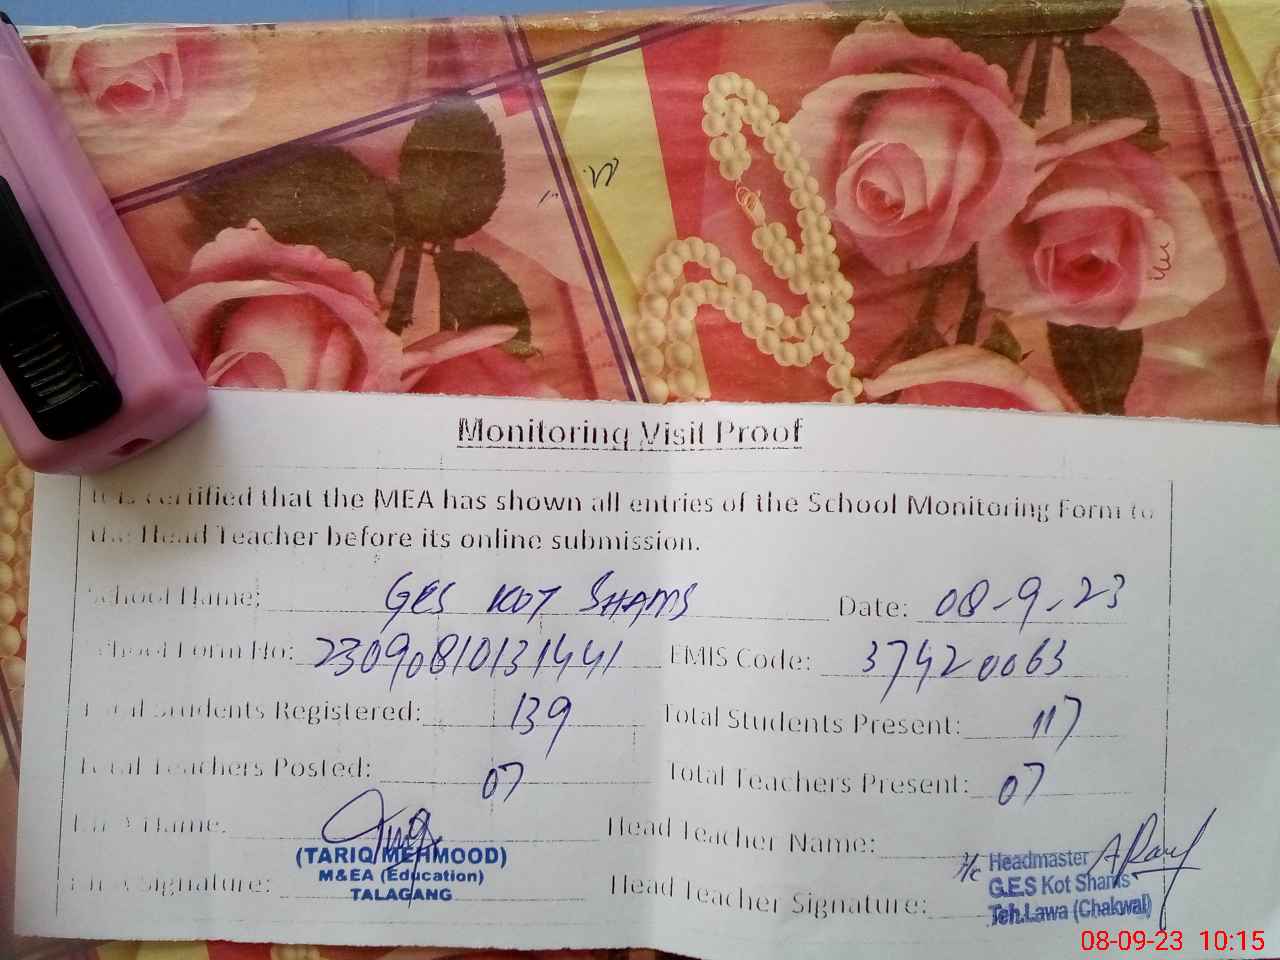 Monitoring Visit Proof
It is certified that the MEA has shown all entries of the School Monitoring Form to
the Head Teacher before its online submission.
School Name: GES KOT SHAMS Date: 08-9-23
School Form No: 23090810131441 EMIS Code: 37420063
Total Students Registered: 139 Total Students Present: 117
Total Teachers Posted: 07 Total Teachers Present: 07
MEA Name: Head Teacher Name:
(TARIQ MEHMOOD)
M&EA (Education)
TALAGANG
MEA Signature: Head Teacher Signature:
I/c Headmaster ARauf
G.E.S Kot Shams
Teh.Lawa (Chakwal)
08-09-23 10:15